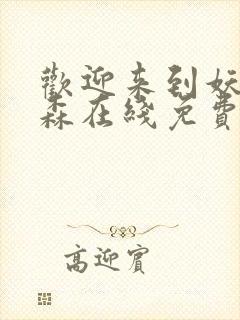 歡迎来到妖
森在綫免費
高迎賓